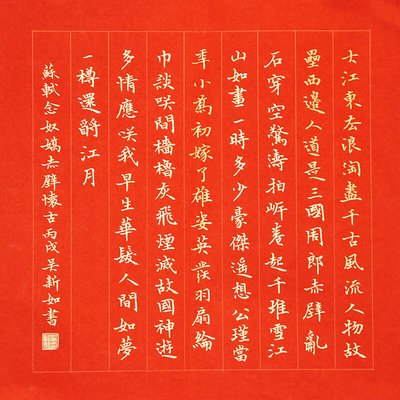 大江東去浪淘盡千古風流人物故
壘西邊人道是三國周郎赤壁亂
石穿空驚濤拍岍捲起千堆雪江
山如畫一時多少豪傑遙想公瑾當
年小喬初嫁了雄姿英發羽扇綸
巾談咲間檣櫓灰飛煙滅故國神遊
多情應咲我早生華髮人間如夢
一樽還酹江月
蘇軾念奴嬌赤壁懷古丙戌吴新如書